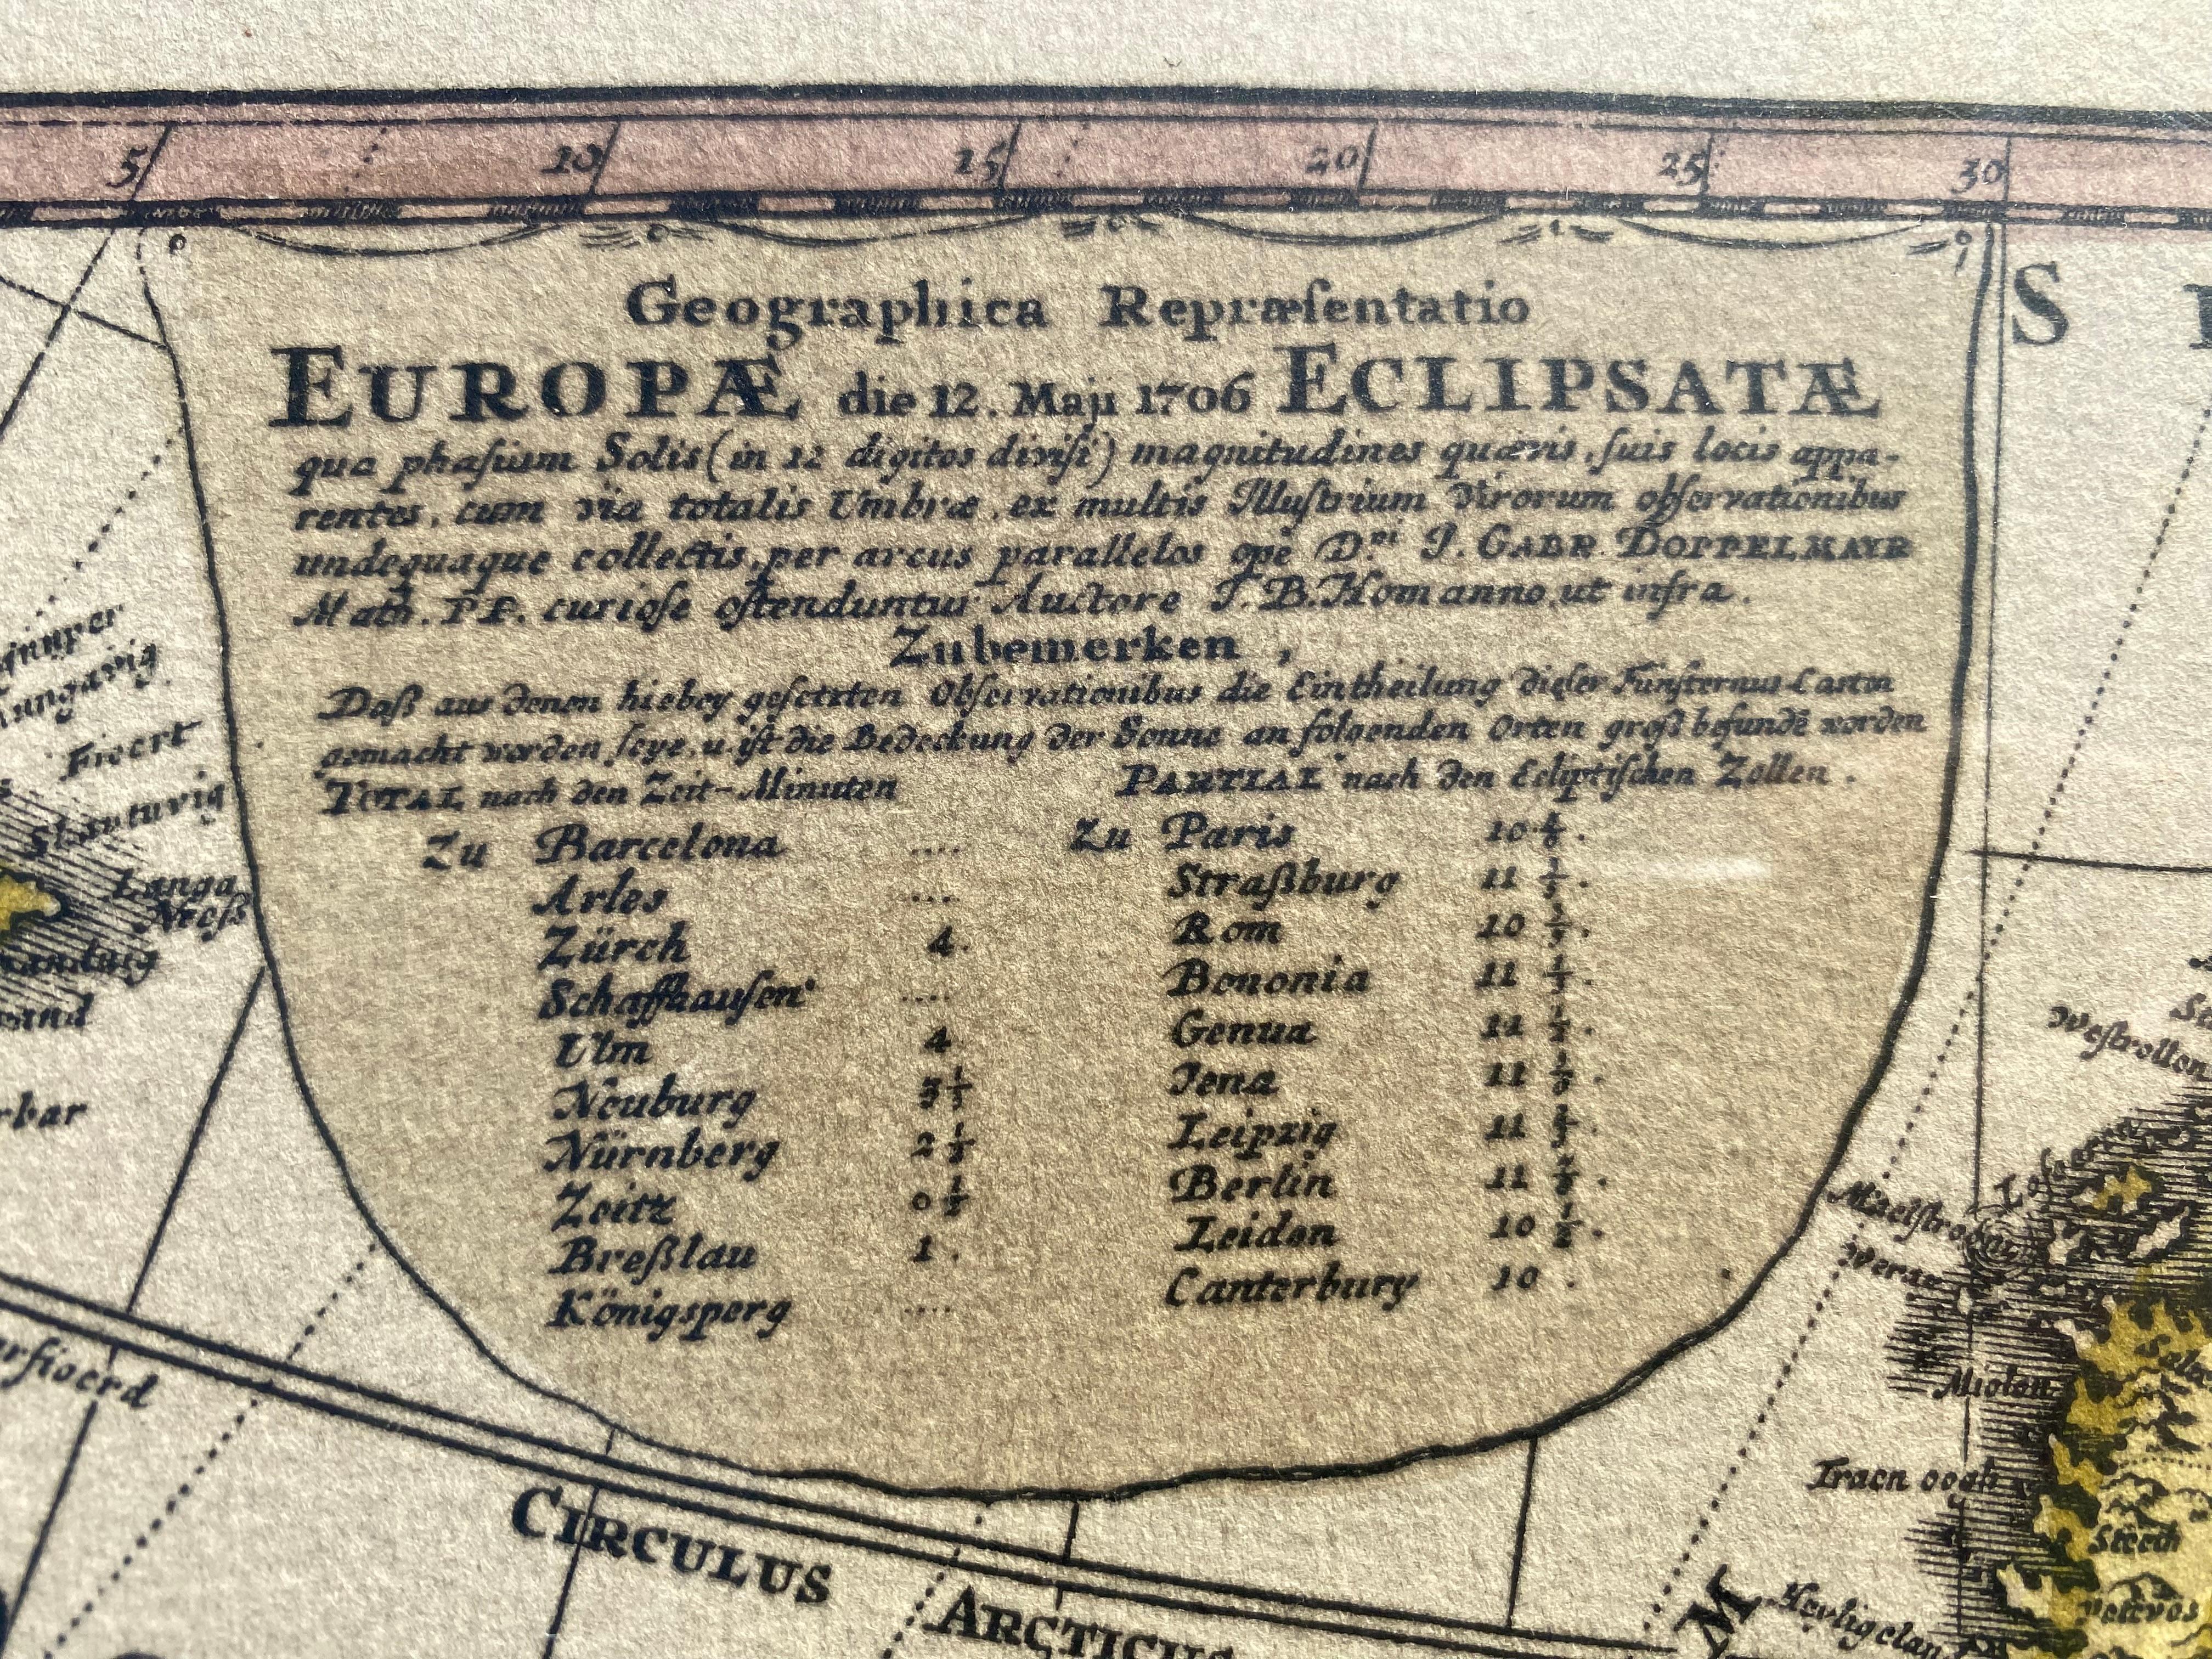 5 10 15 20 25 30
S
Geographica Repræſentatio
EUROPÆ die 12. Maji 1706 ECLIPSATÆ
qua phaſium Solis (in 12 digitos diviſi) magnitudines quævis, ſuis locis appa-
rentes, cum via totalis Umbræ, ex multis Illuſtrium Virorum obſervationibus
undequaque collectis, per arcus parallelos ope Dni I. GABR. DOPPELMAYR
Math. P.P. curioſe oſtenduntur Auctore I. B. Homanno, ut infra.
Zubemerken,
Daß aus denen hiebey geſetzten Obſervationibus die Eintheilung dieſer
gemacht worden ſeye, u. iſt die Bedeckung der Sonne an folgenden Orten groß befundē worden
TOTAL nach den Zeit-Minuten PARTIAL nach den Ecliptiſchen Zollen.
Zu Barcelona .... Zu Paris 10
Arles .... Straßburg 11
Zürch 4. Rom 10
Schaffhauſen .... Bononia 11
Ulm 4 Genua 11
Neuburg 3 Jena 11
Nürnberg 2 Leipzig 11
Zeitz 0 1/2 Berlin 11
Breßlau 1. Leiden 10 1/2.
Königsperg .... Canterbury 10.
Fioert
Langa
Weſtrollen
Miolen
CIRCULUS
ARCTICUS
M
Steeth